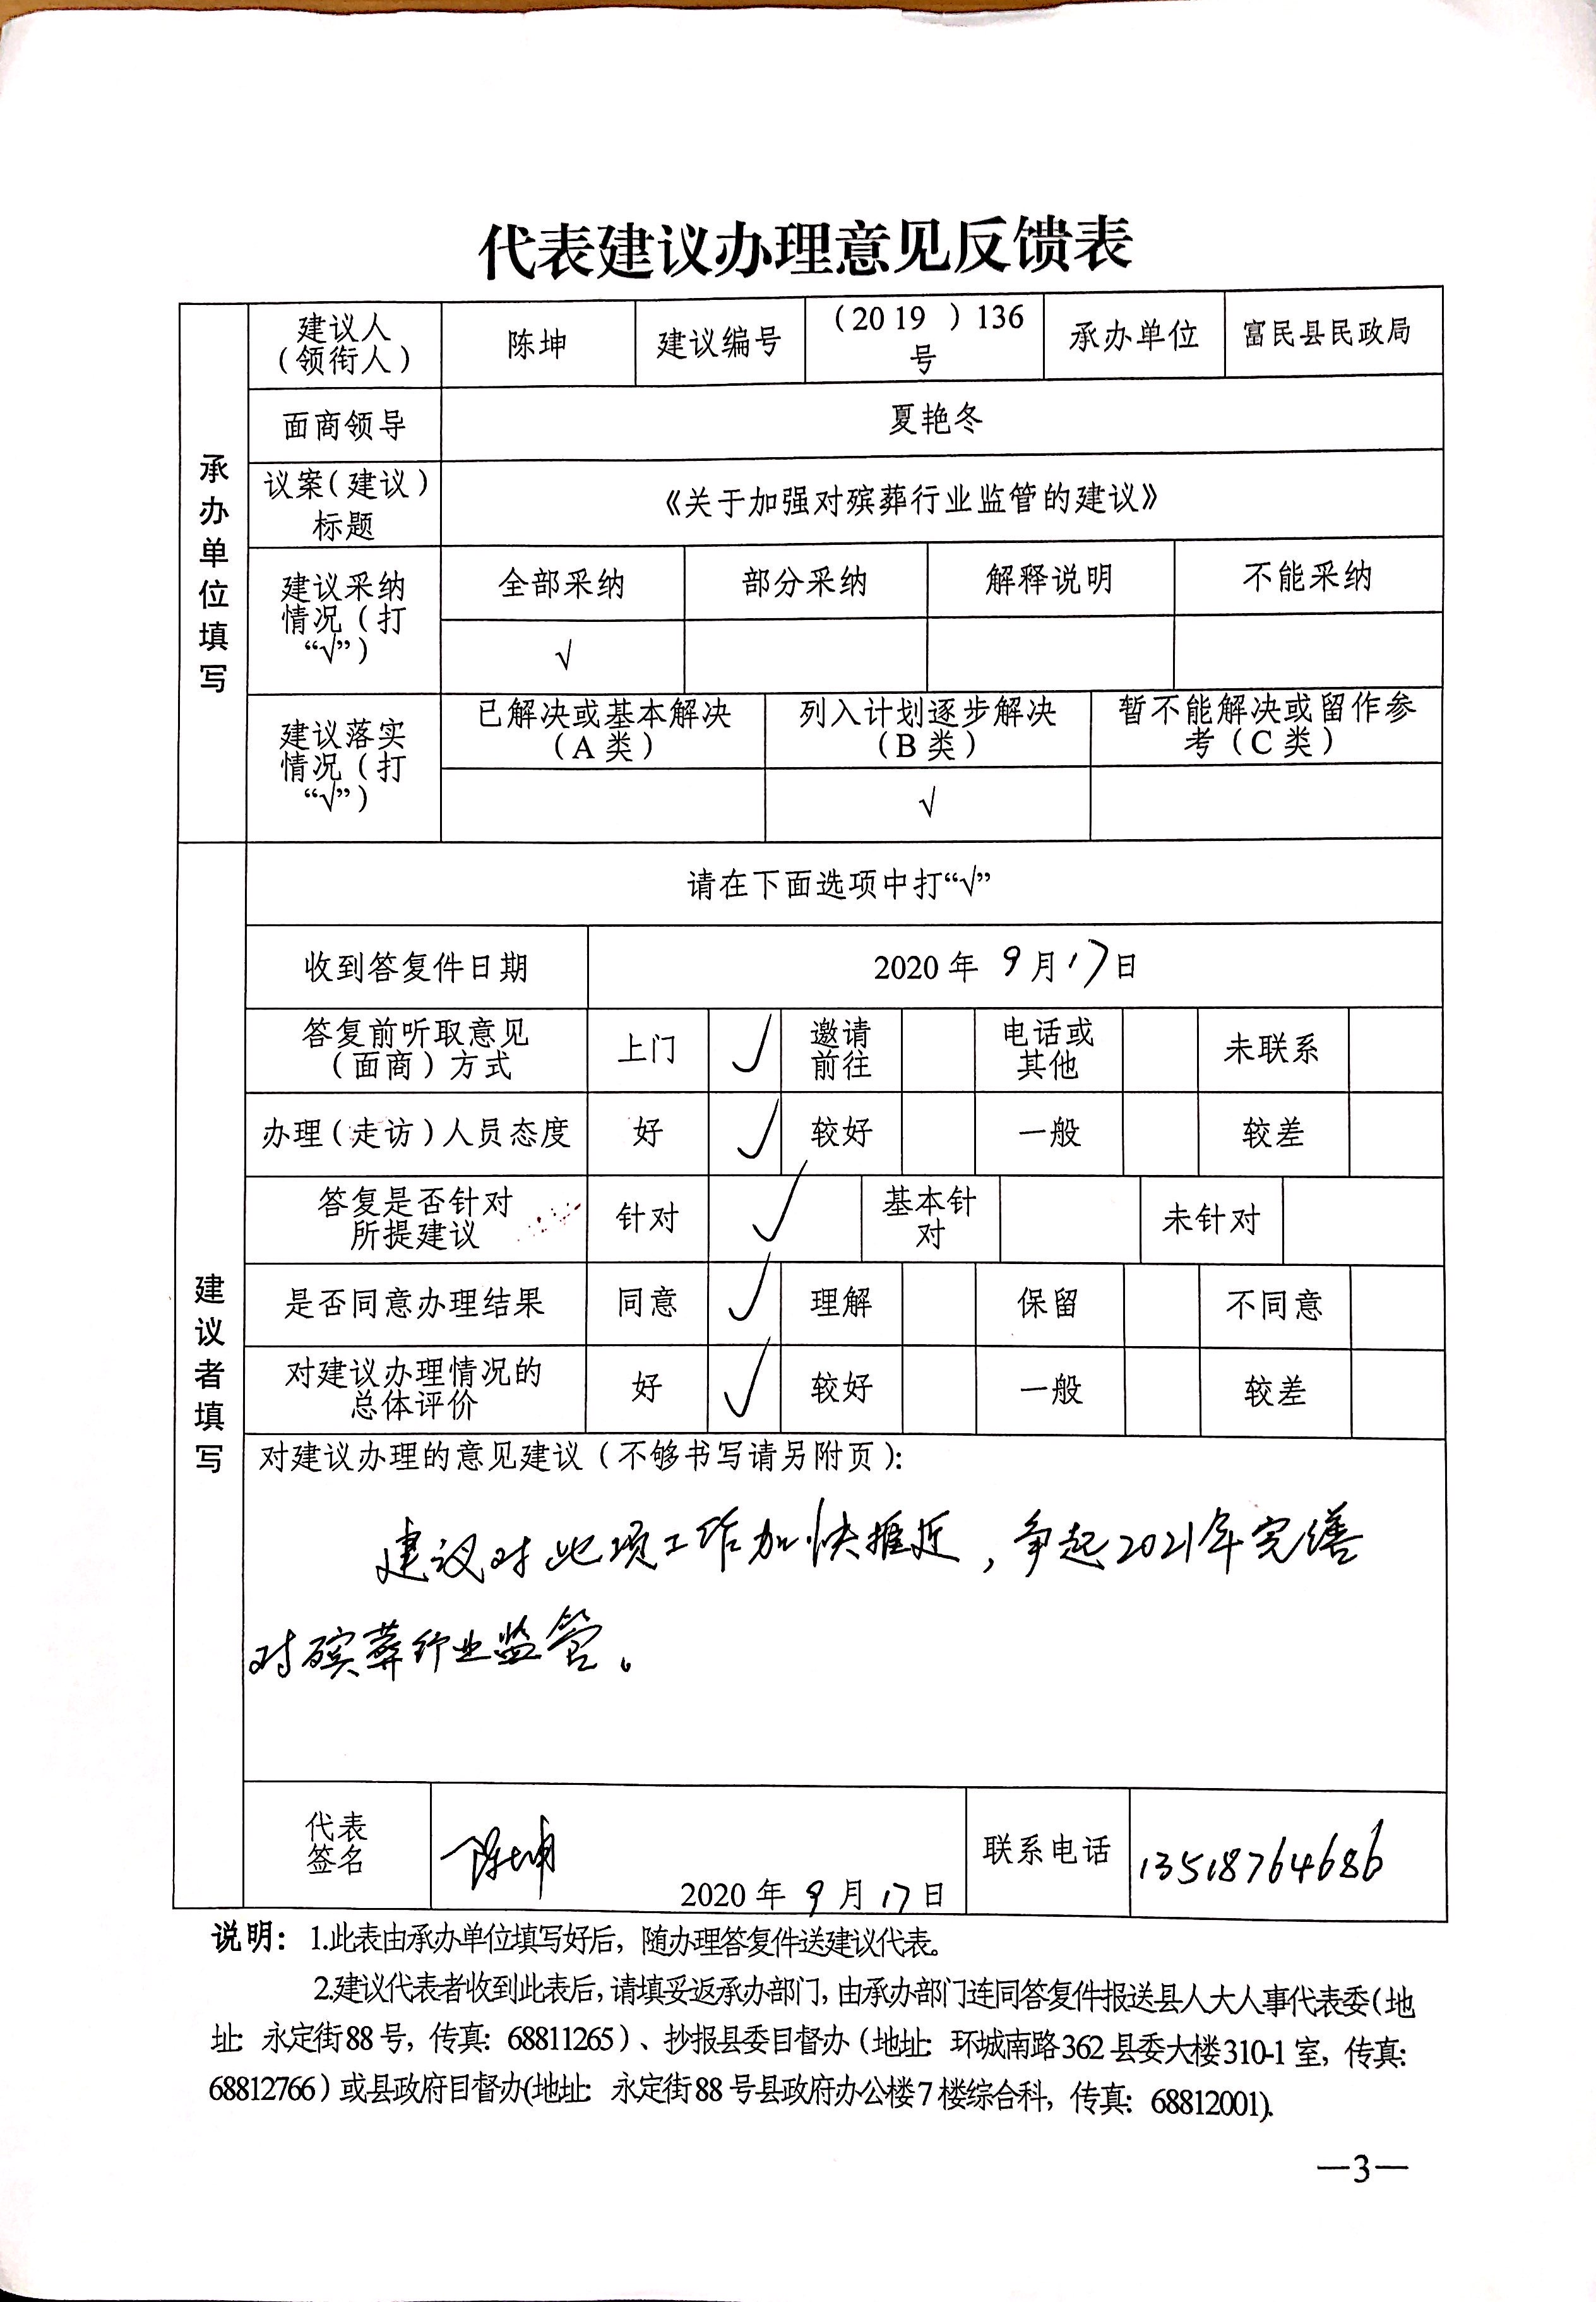 代表建议办理意见反馈表
承办单位填写
建议人
（领衔人）
陈坤
建议编号
（20 19 ）136
号
承办单位
富民县民政局
面商领导
夏艳冬
议案（建议）
标题
《关于加强对殡葬行业监管的建议》
建议采纳
情况（打
“√”）
全部采纳
部分采纳
解释说明
不能采纳
√
建议落实
情况（打
“√”）
已解决或基本解决
（A 类）
列入计划逐步解决
（B 类）
暂不能解决或留作参
考（C 类）
√
建议者填写
请在下面选项中打“√”
收到答复件日期
2020 年 9 月 17 日
答复前听取意见
（面商）方式
上门
√
邀请
前往
电话或
其他
未联系
办理（走访）人员态度
好
√
较好
一般
较差
答复是否针对
所提建议
针对
√
基本针
对
未针对
是否同意办理结果
同意
√
理解
保留
不同意
对建议办理情况的
总体评价
好
√
较好
一般
较差
对建议办理的意见建议（不够书写请另附页）：
建议对此项工作加快推近，争起2021年完善
对殡葬行业监管。
代表
签名
陈坤
2020 年 9 月 17 日
联系电话
13518764686
说明：1.此表由承办单位填写好后，随办理答复件送建议代表。
2.建议代表者收到此表后，请填妥返承办部门，由承办部门连同答复件报送县人大人事代表委（地
址：永定街 88 号，传真：68811265）、抄报县委目督办（地址：环城南路 362 县委大楼 310-1 室，传真：
68812766）或县政府目督办(地址：永定街 88 号县政府办公楼 7 楼综合科，传真：68812001).
—3—